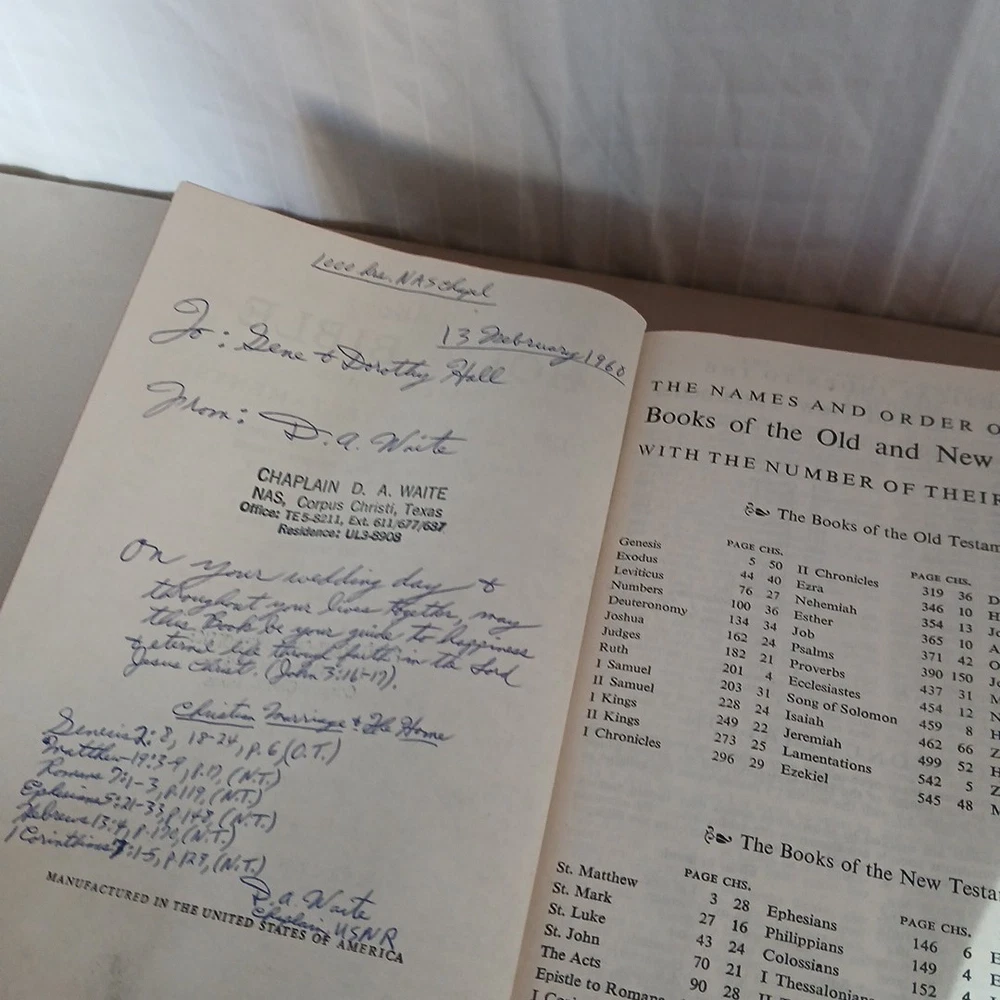 1000 hrs. NAS Chapel
13 February 1960
To: Gene & Dorothy Hall
From: D. A. Waite
CHAPLAIN D. A. WAITE
NAS, Corpus Christi, Texas
Office: TE5-8211, Ext. 611/677/687
Residence: UL3-8908
On your wedding day &
throughout your lives together, may
this Book be your guide to happiness
& eternal life through faith in the Lord
Jesus Christ. (John 3:16-17).
Christian Marriage & The Home
Genesis 2:8, 18-24, p. 6 (O.T.)
Matthew 19:3-9, p. 17, (N.T.)
Romans 7:1-3, p. 119, (N.T.)
Ephesians 5:21-33, p. 148, (N.T.)
Hebrews 13:4, p. 170, (N.T.)
1 Corinthians 7:1-5, p. 127, (N.T.)
D. A. Waite
Chaplain, USNR
MANUFACTURED IN THE UNITED STATES OF AMERICA
THE NAMES AND ORDER O
Books of the Old and New
WITH THE NUMBER OF THEIR
The Books of the Old Testam
PAGE CHS.
Genesis 5 50
Exodus 44 40
Leviticus 76 27
Numbers 100 36
Deuteronomy 134 34
Joshua 162 24
Judges 182 21
Ruth 201 4
I Samuel 203 31
II Samuel 228 24
I Kings 249 22
II Kings 273 25
I Chronicles 296 29
PAGE CHS.
II Chronicles 319 36
Ezra 346 10
Nehemiah 354 13
Esther 365 10
Job 371 42
Psalms 390 150
Proverbs 437 31
Ecclesiastes 454 12
Song of Solomon 459 8
Isaiah 462 66
Jeremiah 499 52
Lamentations 542 5
Ezekiel 545 48
D
H
J
A
O
J
M
N
H
Z
H
Z
M
The Books of the New Testa
PAGE CHS.
St. Matthew 3 28
St. Mark 27 16
St. Luke 43 24
St. John 70 21
The Acts 90 28
Epistle to Romans
PAGE CHS.
Ephesians 146 6
Philippians 149 4
Colossians 152 4
I Thessalonians